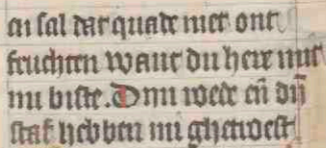 en sal dat quade niet ont
fruchten want du here mit
mi biste. Dyn roede en̄ dyn
staf hebben mi ghetroest